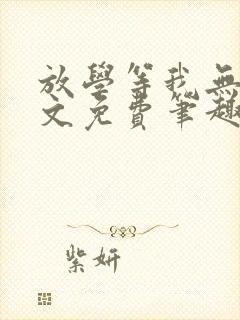 放學等我無
文免費筆趣
紫妍